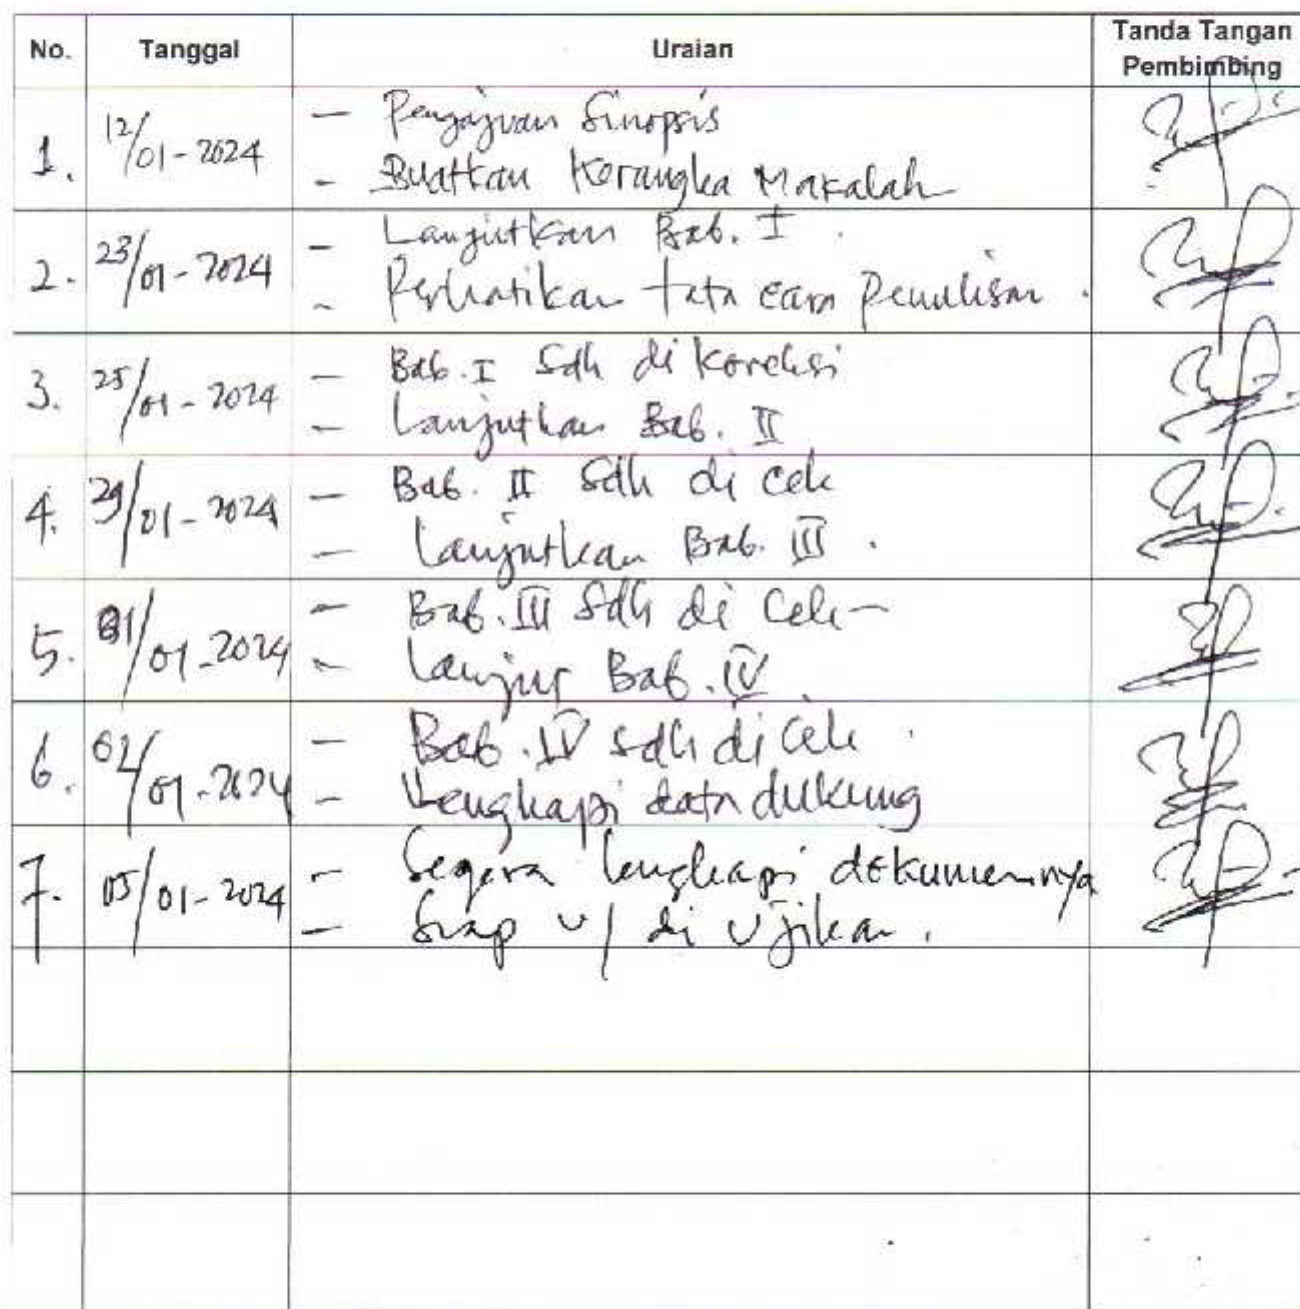 No. Tanggal Uraian Tanda Tangan Pembimbing
1. 12/01-2024 - Pengajuan Sinopsis
- Buatkan Kerangka Makalah
2. 23/01-2024 - Lanjutkan Bab. I.
- Perhatikan tata cara Penulisan.
3. 25/01-2024 - Bab. I Sdh di Koreksi
- Lanjutkan Bab. II
4. 29/01-2024 - Bab. II Sdh di Cek
- Lanjutkan Bab. III.
5. 31/01-2024 - Bab. III Sdh di Cek
- Lanjut Bab. IV.
6. 02/01-2024 - Bab. IV sdh di Cek.
- Lengkapi data dukung
7. 05/01-2024 - Segera lengkapi dokumennya
- Siap u/ di Ujikan.